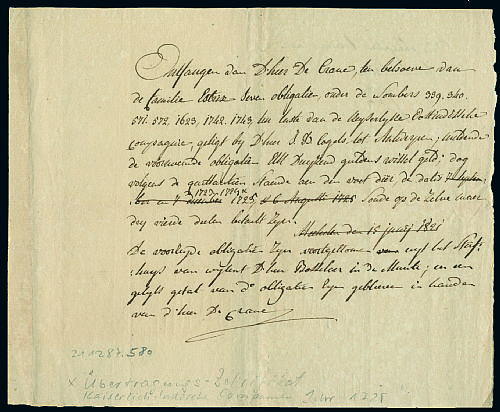 Ontfangen van D'heer De Crane, ten behoeve van
de familie seven obligatien, onder de Nombers 339, 340,
571. 572, 1623, 1742. 1743, ten laste van de Keyserlyke Oostindische
Compagnie, getigt by D'heer J. B Cogels tot Antwerpen,
de voornoemde obligatien Elf Duyzend guldens wissel geld; dog
volgens de quittantien staende aen den voet dier de datis 7
ber en 7 1725, 6 Augusti 1725 soude op de zelve maer
dry vierde deelen betaelt zyn.
Mechelen den 15 juny 1821
De voorseyde obligatien zyn voortgekomen uyt het Sterf-
huys van wylent D'heer in de Munte; en een
gelyk getal van d° obligatien zyn gebleven in handen
van d'heer De Crane
211287.580
x Übertragungs-Zertifikat
Kaiserlich Indische Compagnie 1725